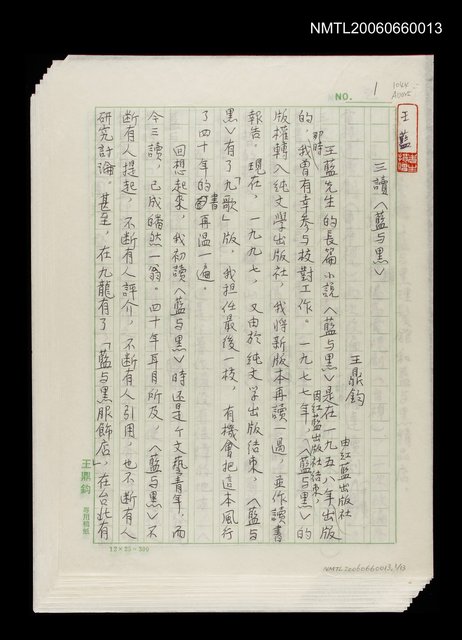 NMTL20060660013
NO. 1
王藍
三讀〈藍与黑〉
王鼎鈞
由紅藍出版社
王藍先生的長篇小說〈藍与黑〉是在一九五八年出版
那時
的，我曾有幸参与校對工作。一九七七年，〈藍与黑〉的
因紅藍出版社结束，
版權轉入纯文學出版社，我將新版本再讀一過，並作讀書
報告。現在，一九九七，又由於純文學出版结束，〈藍与
黑〉有了「九歌」版，我担任最後一校，有機會把這本風行
了四十年的書再溫一遍
回想起來，我初讀〈藍与黑〉時还是个文藝青年，而
今三讀，已成皤然一翁。四十年耳目所及，〈藍与黑〉不
断有人提起，不断有人評介，不断有人引用，也不断有人
研究討論。甚至，在九龍有了「藍与黑服飾店」，在台北有
王鼎鈞 專用稿紙
12×25=300
NMTL20060660013,1/13